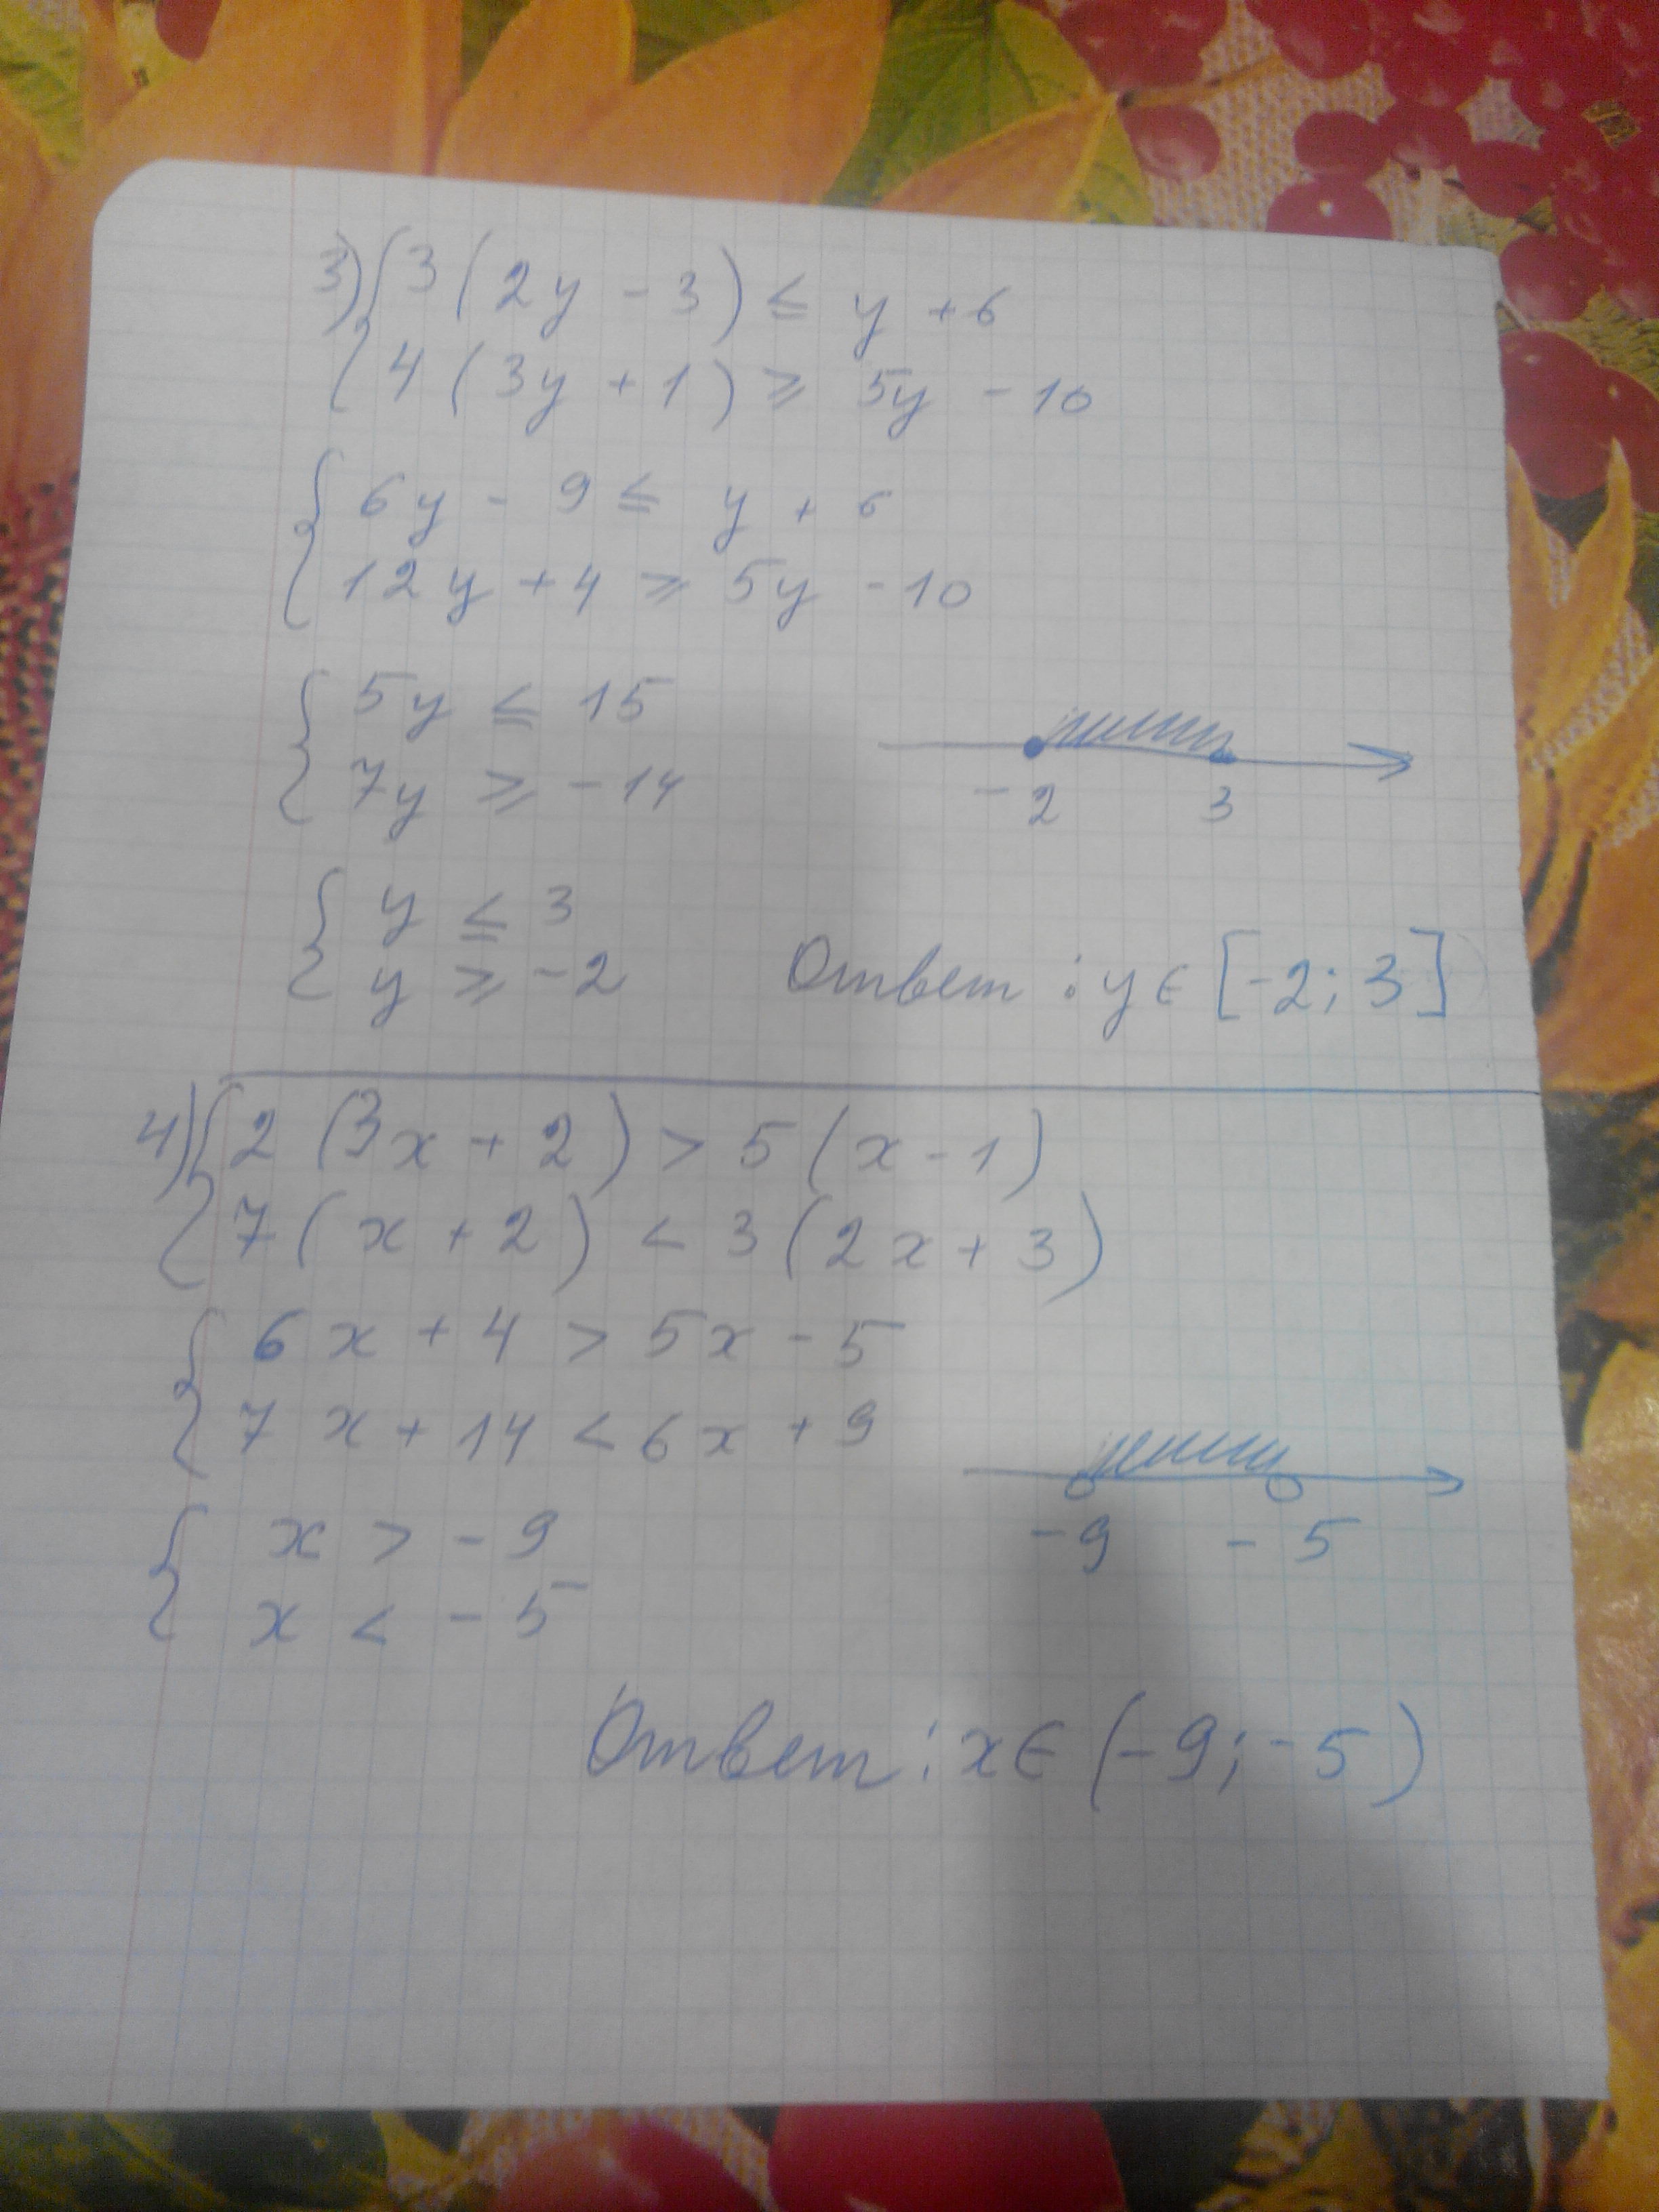 3) { 3 ( 2y - 3 ) ≤ y + 6
4 ( 3y + 1 ) ≥ 5y - 10
{ 6y - 9 ≤ y + 6
12y + 4 ≥ 5y - 10
{ 5y ≤ 15
7y ≥ -14
-2 3
{ y ≤ 3
y ≥ -2
Ответ : y ∈ [-2; 3]
4) { 2 (3x + 2) > 5 (x - 1)
7 ( x + 2 ) < 3 (2x + 3)
{ 6x + 4 > 5x - 5
7x + 14 < 6x + 9
-9 -5
{ x > -9
x < -5
Ответ : x ∈ (-9; -5)